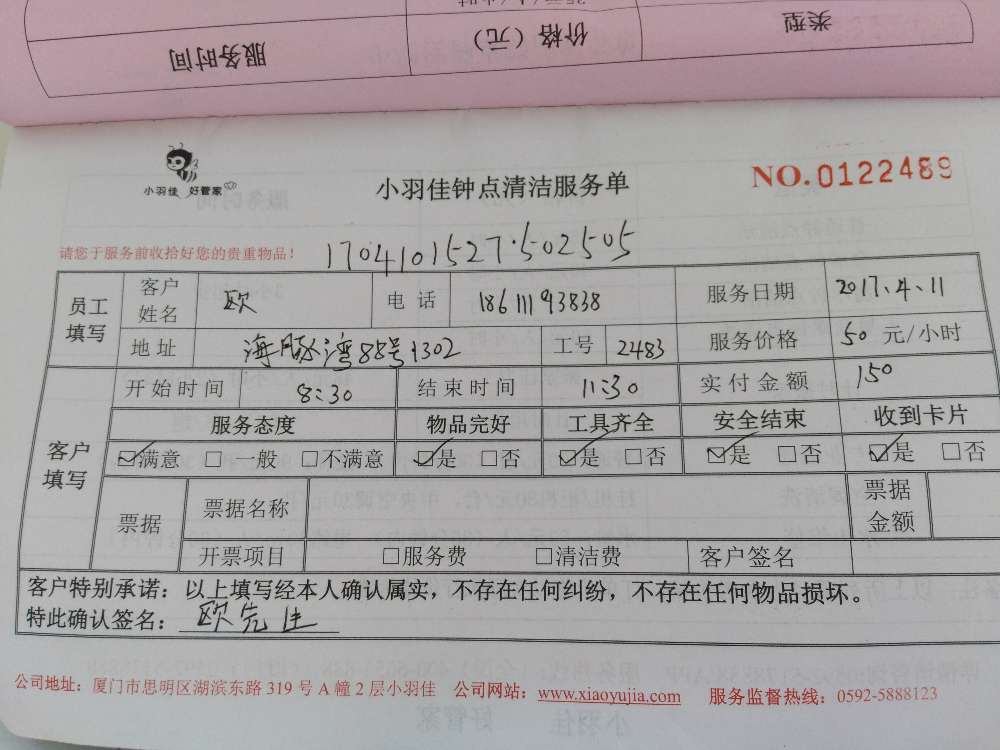 服务时间 价格（元） 类型
小羽佳 好管家
小羽佳钟点清洁服务单
NO.0122489
请您于服务前收拾好您的贵重物品！
1704101527502505
员工填写 客户姓名 欧 电话 18611193838 服务日期 2017.4.11
地址 海豚湾88号1302 工号 2483 服务价格 50 元/小时
客户填写 开始时间 8:30 结束时间 11:30 实付金额 150
服务态度 物品完好 工具齐全 安全结束 收到卡片
☑满意 □一般 □不满意 ☑是 □否 ☑是 □否 ☑是 □否 ☑是 □否
票据 票据名称 票据金额
开票项目 □服务费 □清洁费 客户签名
客户特别承诺：以上填写经本人确认属实，不存在任何纠纷，不存在任何物品损坏。
特此确认签名：欧先生
公司地址：厦门市思明区湖滨东路 319 号 A 幢 2 层小羽佳 公司网站：www.xiaoyujia.com 服务监督热线：0592-5888123